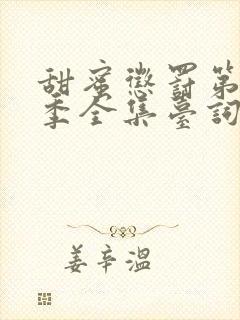 甜蜜懲罰第
季全集臺詞
姜辛溫